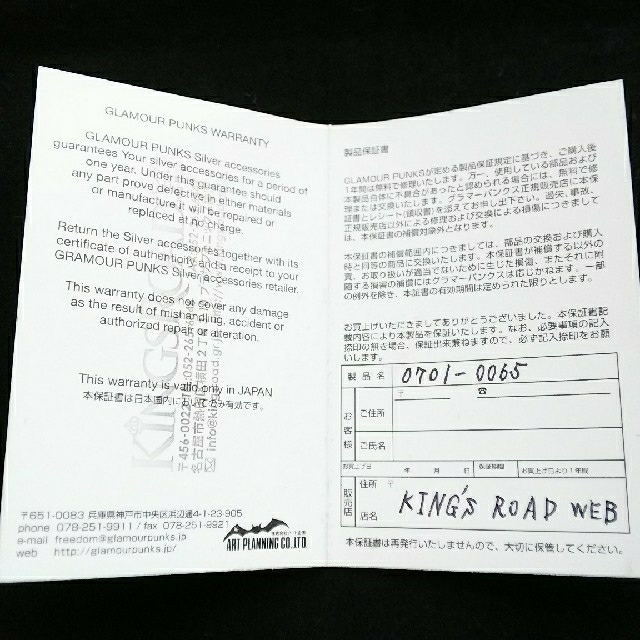 GLAMOUR PUNKS WARRANTY
GLAMOUR PUNKS Silver accessories
guarantees Your silver accessories for a period of
one year. Under this guarantee should
any part prove defective in either materials
or manufacture it will be repaired or
replaced at no charge.
Return the Silver accessories together with its
certificate of authenticity and a receipt to your
GRAMOUR PUNKS Silver accessories retailer.
This warranty does not cover any damage
as the result of mishandling, accident or
authorized repair or alteration.
This warranty is valid only in JAPAN
本保証書は日本国内においてのみ有効です。
〒651-0083 兵庫県神戸市中央区浜辺通4-1-23-905
phone 078-251-9911 / fax 078-251-9921
e-mail freedom@glamourpunks.jp
web http://glamourpunks.jp/
ART PLANNING CO.LTD
KING'S
〒456-002
製品保証書
GLAMOUR PUNKSが定める製品保証規定に基づき、ご購入後
1年間は無料で修理いたします。万一、使用している部品および
本製品自体に不具合があったと認められる場合には、無料で修
理または交換いたします。グラマーパンクス正規販売店に本保
証書とレシート(領収書)を添えてお申し出下さい。過失、事故、
正規販売店以外による修理および交換による損傷につきまして
は、本保証書の補償対象外となります。
本保証書の補償範囲内につきましては、部品の交換および購入
時と同等の商品に交換いたします。本保証書が補償する以外の
責、お取り扱いが適当でないために生じた損傷、またそれに附
随する損害の補償にはグラマーパンクスは応じかねます。一部
の例外を除き、本証書の有効期間は定められた限りとします。
お買上げいただきましてありがとうございました。本保証書記
載内容により本製品を保証いたします。なお、必要事項の記入
捺印の無き場合、保証出来兼ねますので、必ず記入捺印をお願
いします。
製品名 0701-0065
お客様
〒 ☎
ご住所
ご氏名
お買上げ日 年 月 日 保証期間 お買上げ日より1年間
販売店
住所 〒
店名 KING'S ROAD WEB
本保証書は再発行いたしませんので、大切に保管してください。